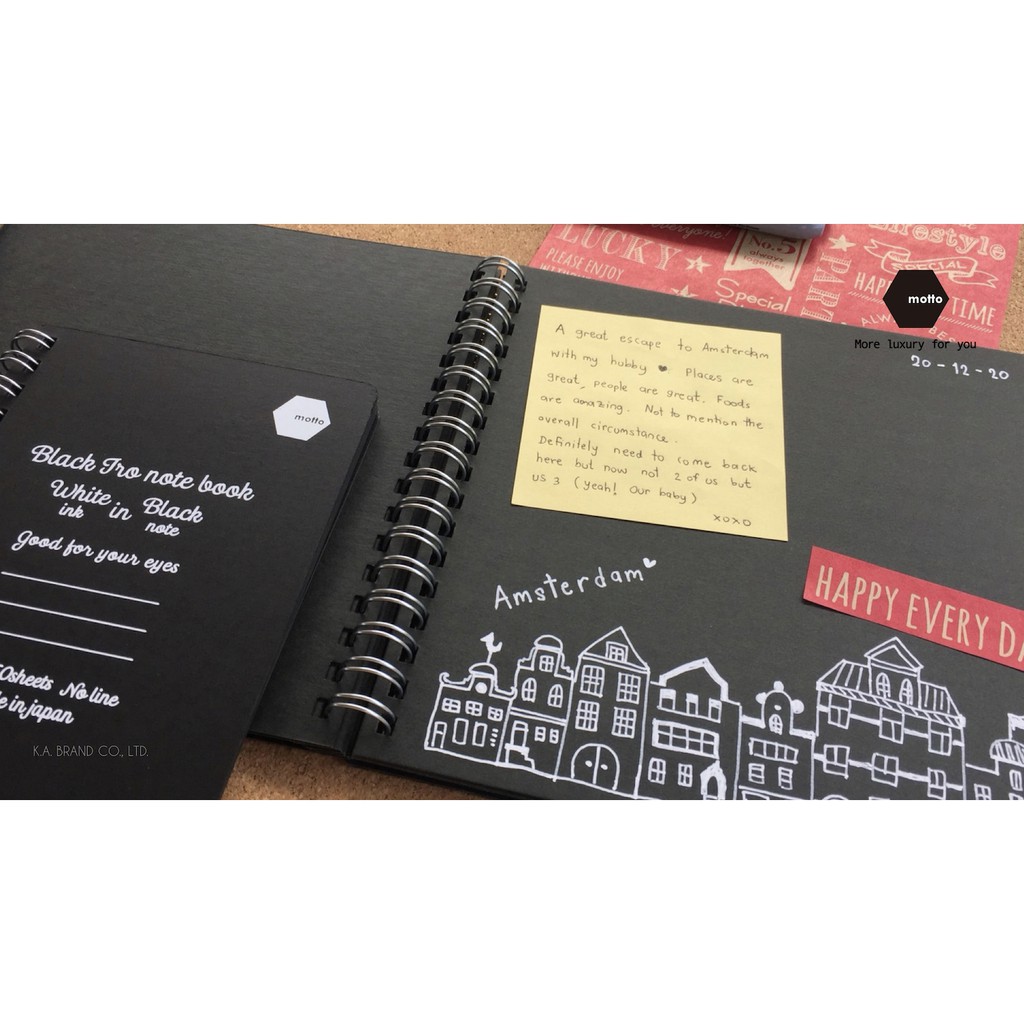 motto
Black Iro note book
White in Black
ink note
Good for your eyes
0sheets No line
e in japan
K.A. BRAND CO., LTD.
A great escape to Amsterdam
with my hubby ❤. Places are
great, people are great. Foods
are amazing. Not to mention the
overall circumstance.
Definitely need to come back
here but now not 2 of us but
US 3 (yeah! Our baby)
xoxo
Amsterdam
20-12-20
HAPPY EVERY DA
everyone!
LUCKY
PLEASE ENJOY
No.5
always
together
Special
PAR
lifestyle
SPECIAL
HAP
TIME
ALW
BE
motto
More luxury for you